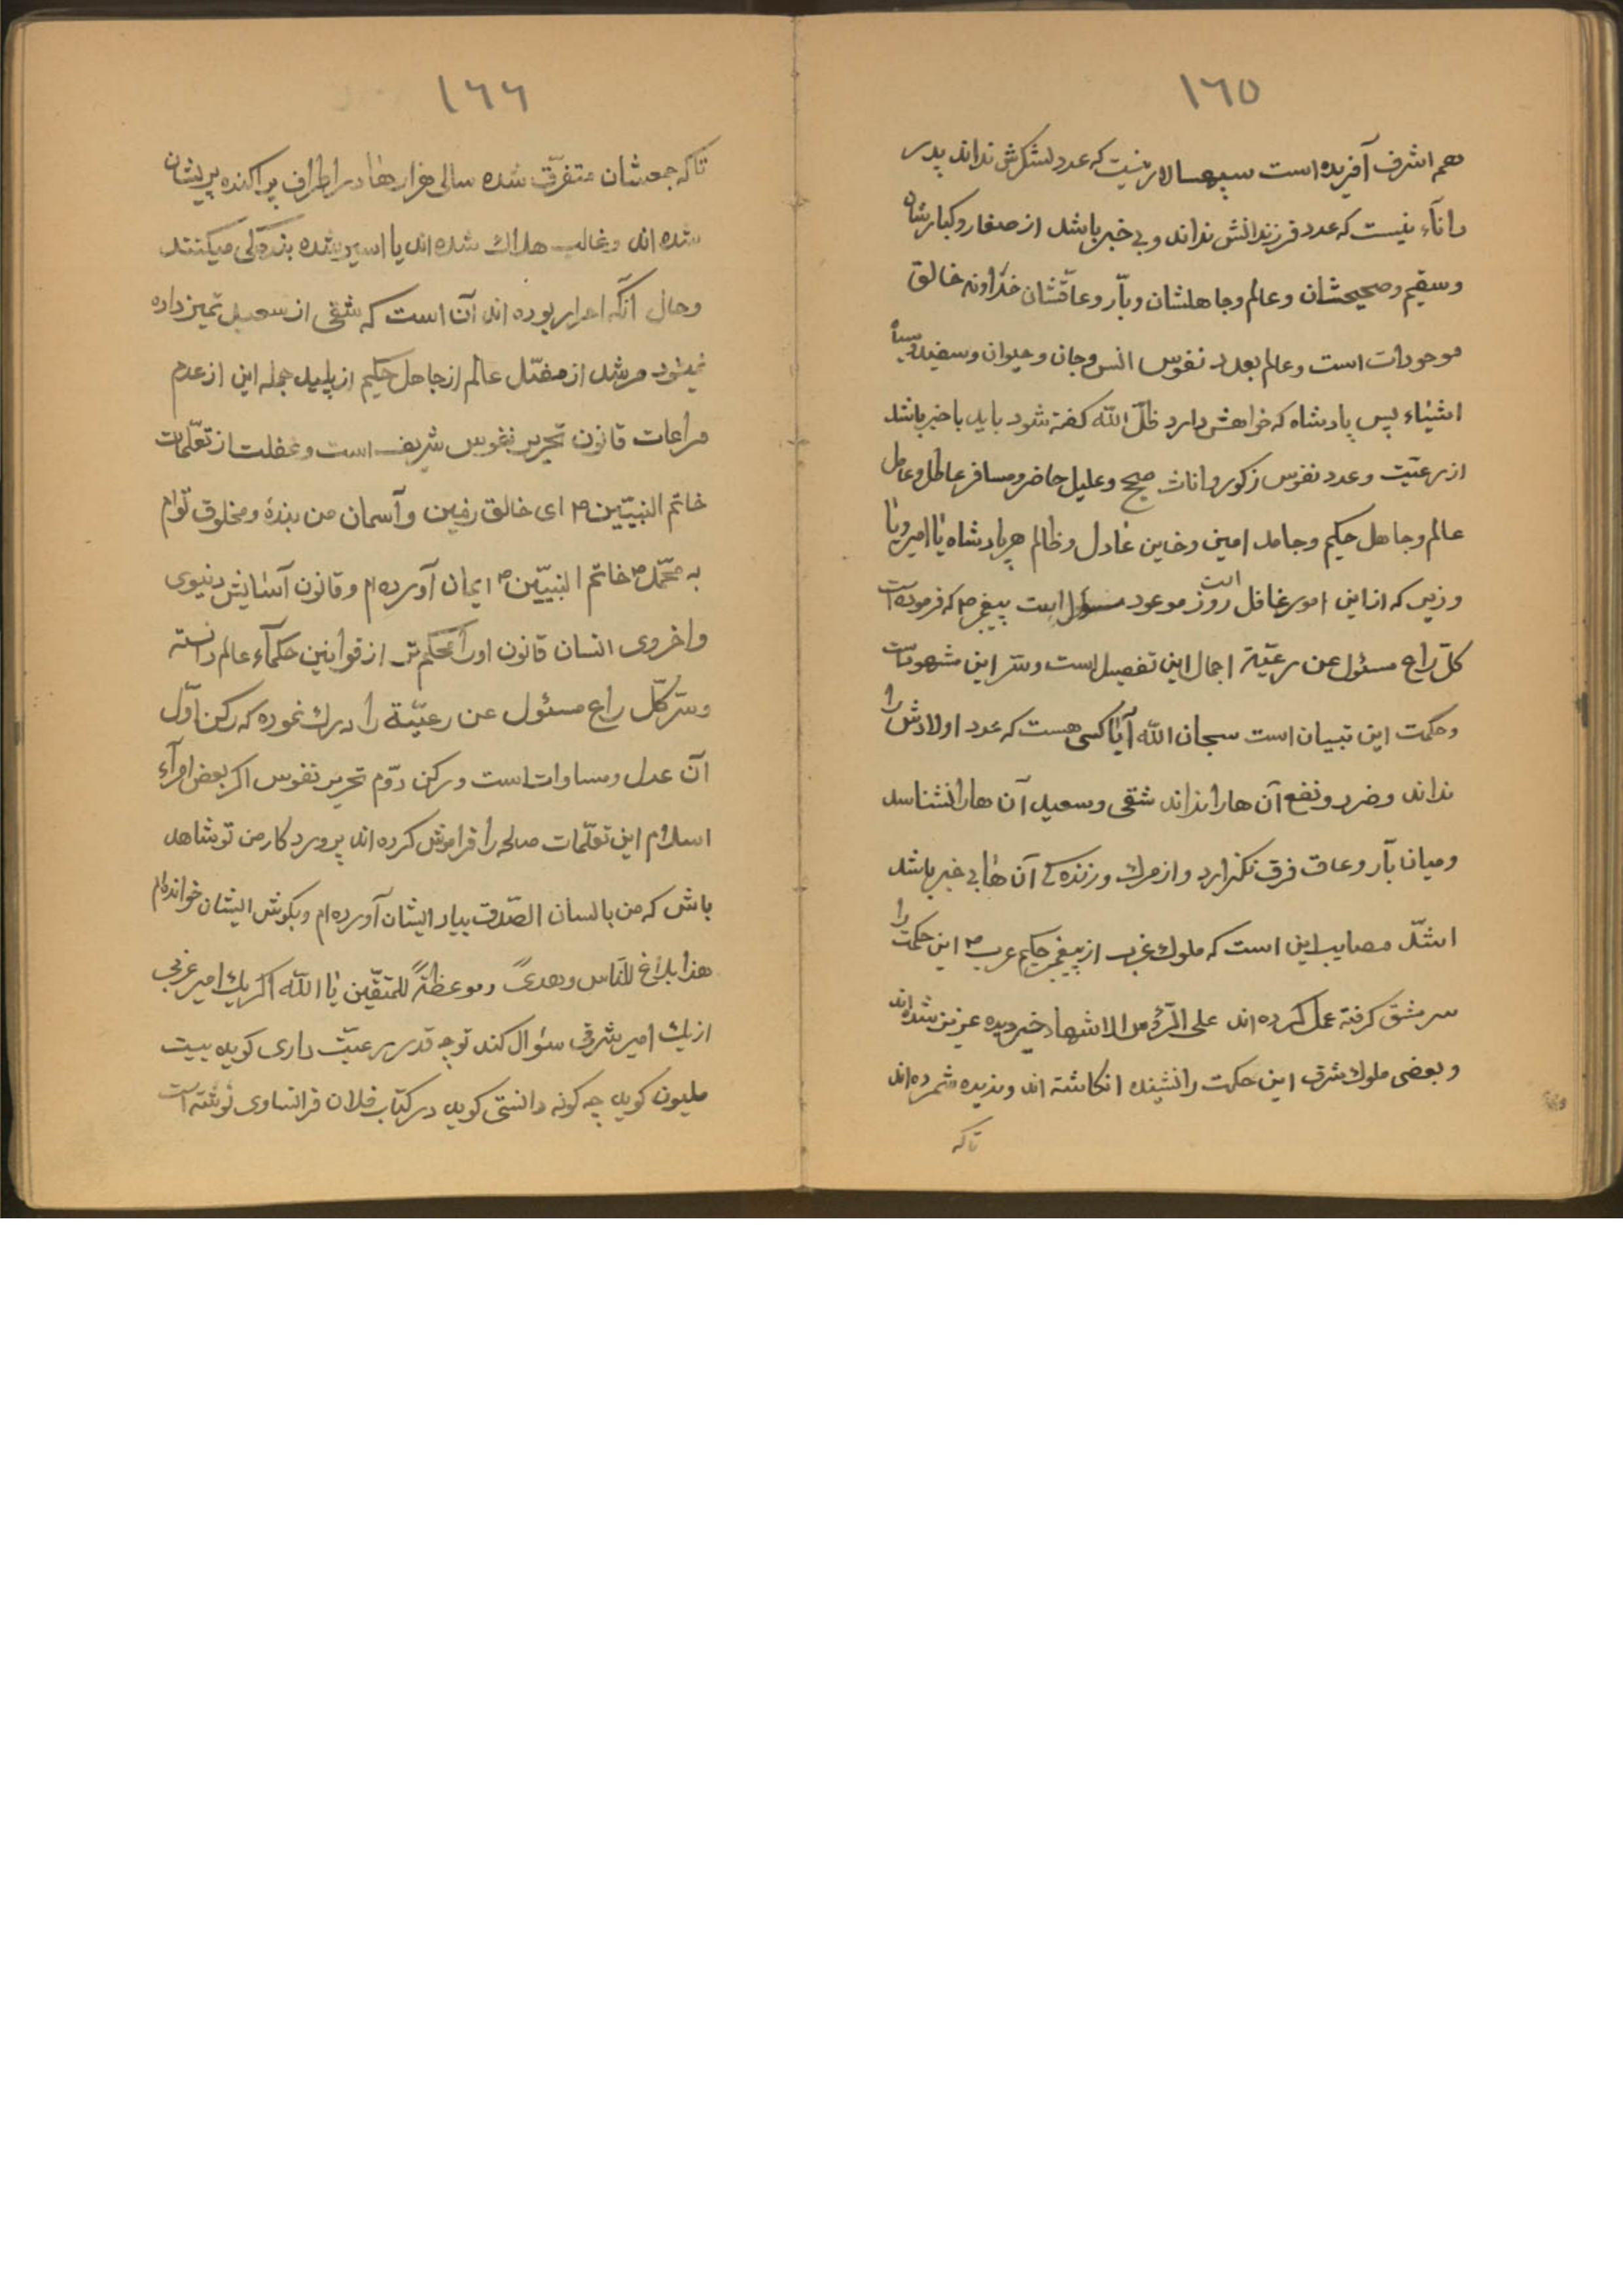 ١٦٥
هم اشرف آفریده است سپهسالار نیست که عدد لشکرش نداند پدر
دانآء نیست که عدد فرزندانش نداند و بی خبر باشد از صغار و کبارشان
و سقیم و صحیحشان و عالم و جاهلشان و بآر و عاقشان خداوند خالق
موجودات است و عالم بعدد نفوس انس و جان و حیوان و سفید و سیاه
اشیاء پس پادشاه که خواهش دارد ظلّ الله گفته شود باید باخبر باشد
از رعیّت و عدد نفوس زکور و اناث صحیح و علیل حاضر و مسافر عاطل و عامل
عالم و جاهل حکیم و جامد امین و خاین عادل و ظالم هر پادشاه یا امیر و یا
وزیر که از این امور غافل است روز موعود مسؤل است پیغمبر ص که فرموده است
کلّ راع مسئول عن رعیّة اجمال این تفصیل است و سرّ این مشهودات
و حکمت این تبیان است سبحان الله آیا کسی هست که عدد اولادش را
نداند و ضرر و نفع آن ها را نداند شقی و سعید آن ها را نشناسد
و میان بآر و عاق فرق نگذارد و از مرك و زنده کی آن ها بی خبر باشد
اشدّ مصایب این است که ملوك غرب از پیغمبر حکیم عرب ص این حکمت را
سر مشق گرفته عمل کرده اند علی الرؤس الاشهاد خیر دیده عزیز شده اند
و بعضی ملوك شرق این حکمت را نشینده انکاشته اند و ندیده شمرده اند
تا که
١٦٦
تا که جمعشان متفرّق شده سالی هزارها در اطراف پراکنده پریشان
شده اند و غالب هلاك شده اند یا اسیر شده بندگی میکنند
و حال آنکه احرار بوده اند آن است که شقی از سعید تمیز داده
نمیشود مرشد از مفسد عالم از جاهل حکیم از پلید جمله این از عدم
مراعات قانون تحریر نفوس شریف است و غفلت از تعلّمات
خاتم النبیّین ص ای خالق زمین و آسمان من بندهٔ و مخلوق توام
به محمّد ص خاتم النبیّین ص ایمان آورده ام و قانون آسایش دنیوی
و اخروی انسان قانون اورا محکم تر از قوانین حکمآء عالم دانسته
و سرّ کلّ راع مسئول عن رعیّة را درك نموده که رکن اوّل
آن عدل و مساوات است و رکن دوّم تحریر نفوس اکر بعض امرآء
اسلام این تعلّمات صالحه را فراموش کرده اند پروردکار من تو شاهد
باش که من بالسان الصّدق بیاد ایشان آورده ام و بکوش ایشان خوانده ام
هذا بلاغ للنّاس و هدیً و موعظةً للمتقّین یا الله اکر یك امیر غربی
از یك امیر شرقی سؤال کند تو چه قدر رعیّت داری کوید بیست
ملیون کوید چه کونه دانستی کوید در کتاب فلان فرانساوی نوشته است